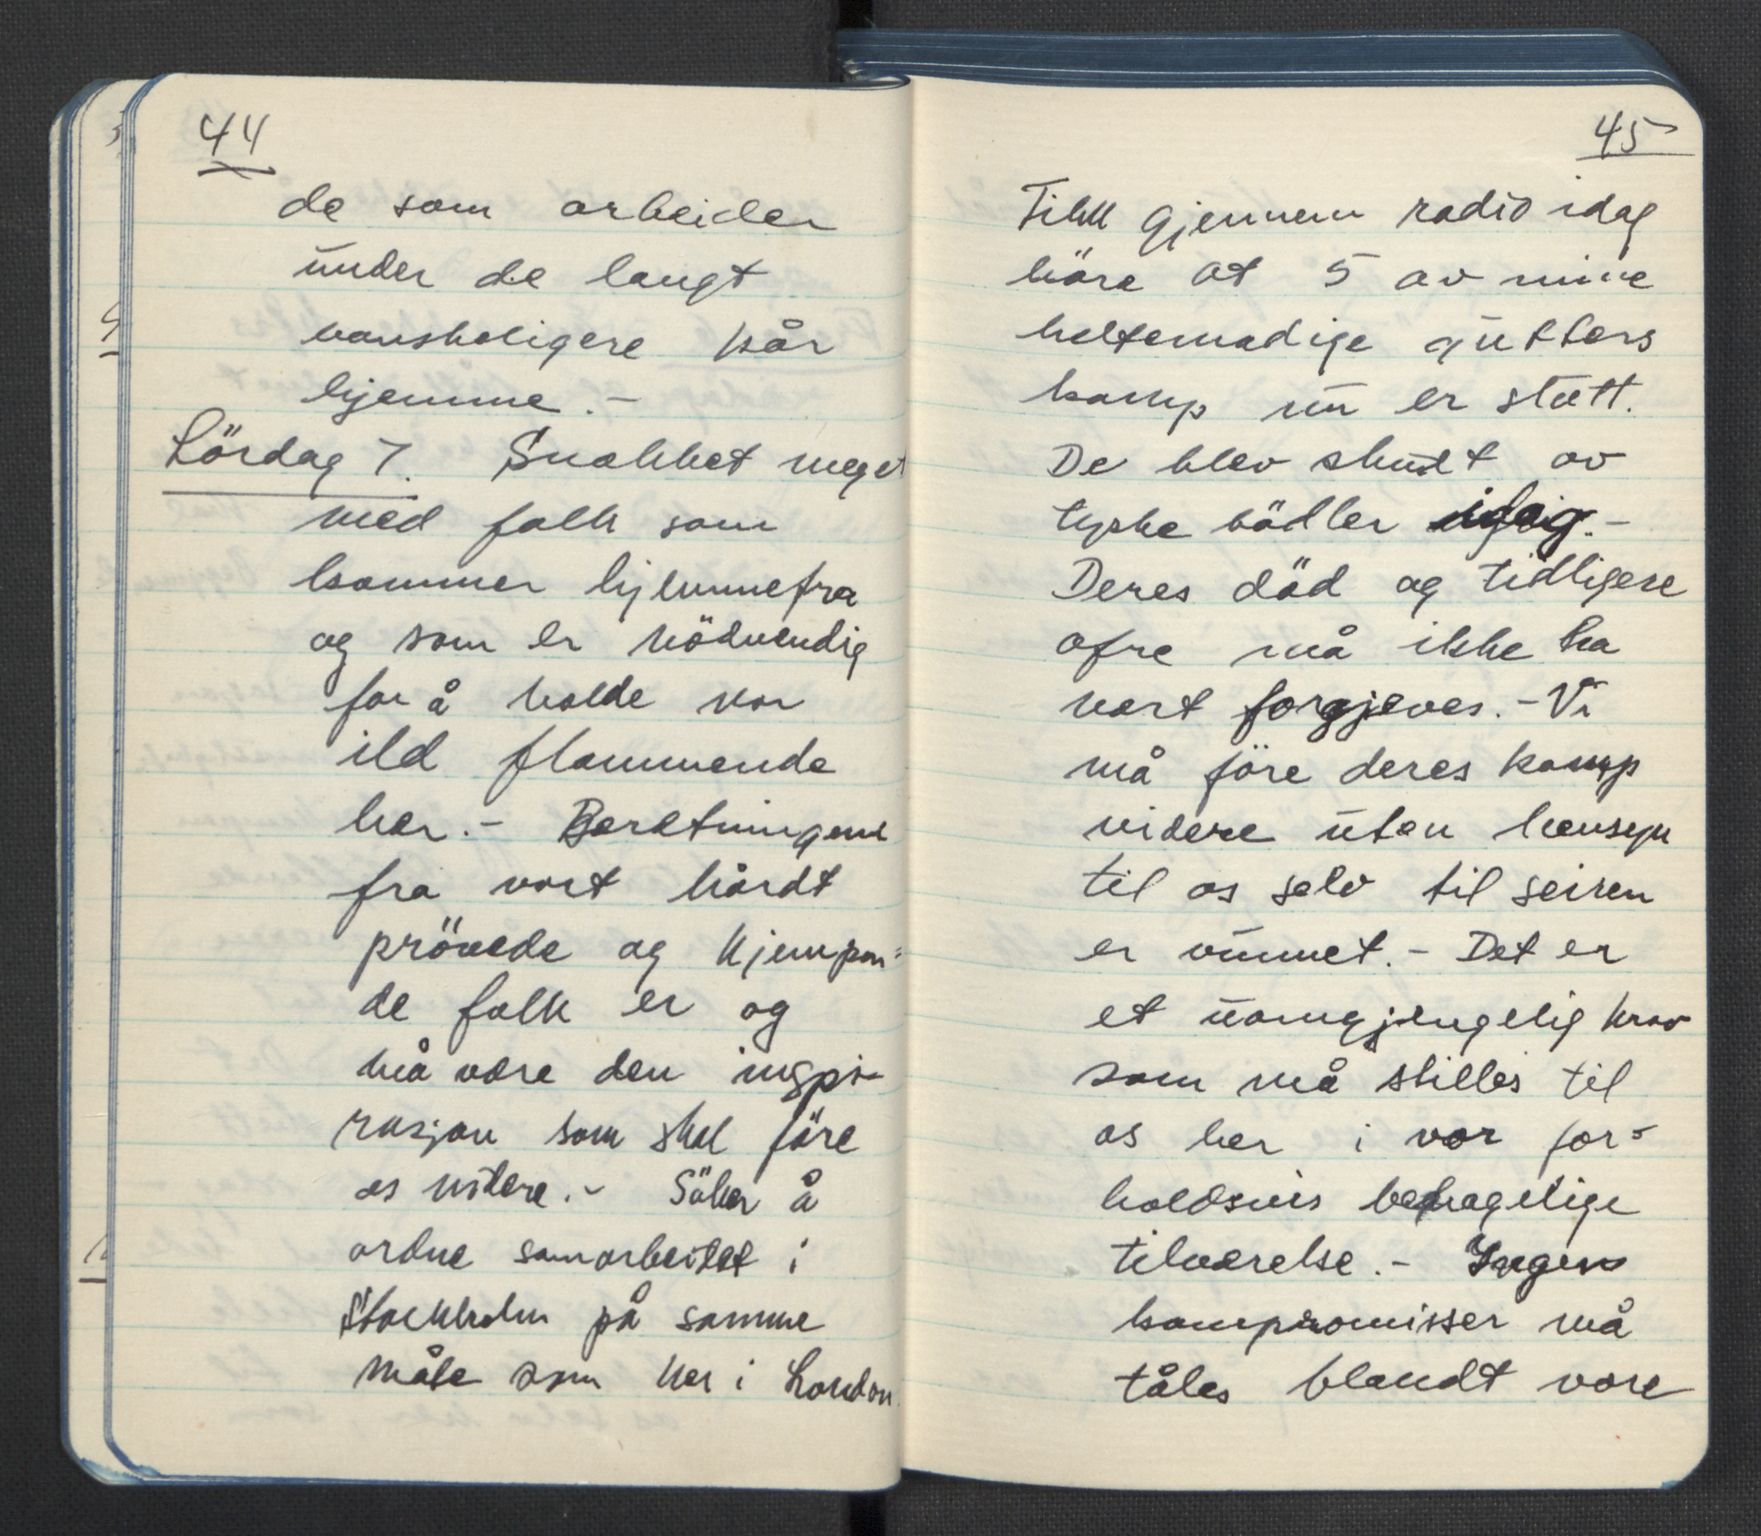 44
de som arbeider
under de langt
vanskeligere kår
hjemme. -
Lördag 7. Snakket meget
med folk som
kommer hjemmefra
og som er nödvendig
for å holde vor
ild flammende
her. - Beretningene
fra vort hårdt
prövede og kjempen=
de folk er og
må være den inspi-
rasjon som skal före
os videre. - Söker å
ordne samarbeidet i
Stockholm på samme
måte som her i London.
45
Fikk gjennem radio idag
höre at 5 av mine
heltemodige gutters
kamp nu er slutt.
De blev skudt av
tyske bödler idag. -
Deres död og tidligere
ofre må ikke ha
vært forgjeves. - Vi
må före deres kamp
videre uten hensyn
til os selv til seiren
er vunnet. - Det er
et uomgjengelig krav
som må stilles til
os her i vor for=
holdsvis behagelige
tilværelse. - Ingen
kompromisser må
tåles blandt vore